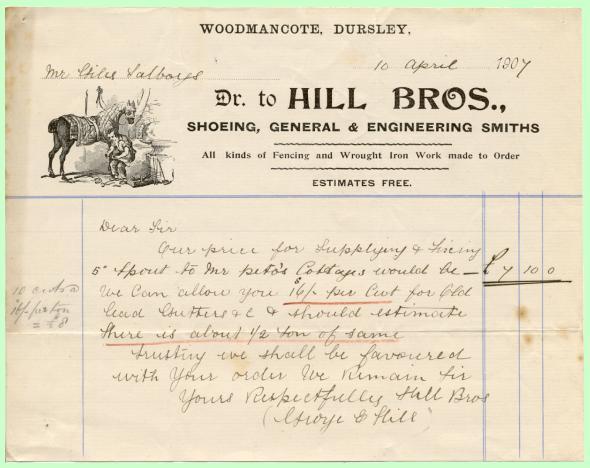 WOODMANCOTE, DURSLEY,
10 April 1907
Mr Giles
Dr. to HILL BROS.,
SHOEING, GENERAL & ENGINEERING SMITHS
All kinds of Fencing and Wrought Iron Work made to Order
ESTIMATES FREE.
Dear Sir
Our price for Supplying & Fixing
5" Spout to Mr Peto's Cottages would be — £ 7 10 0
We Can allow you 16/- per Cwt for Old
lead Gutters &c & should estimate
there is about 1/2 ton of same
10 cwts @
16/- per ton
= £8
trusting we shall be favoured
with your order We Remain Sir
Yours Respectfully Hill Bros
(George Hill)